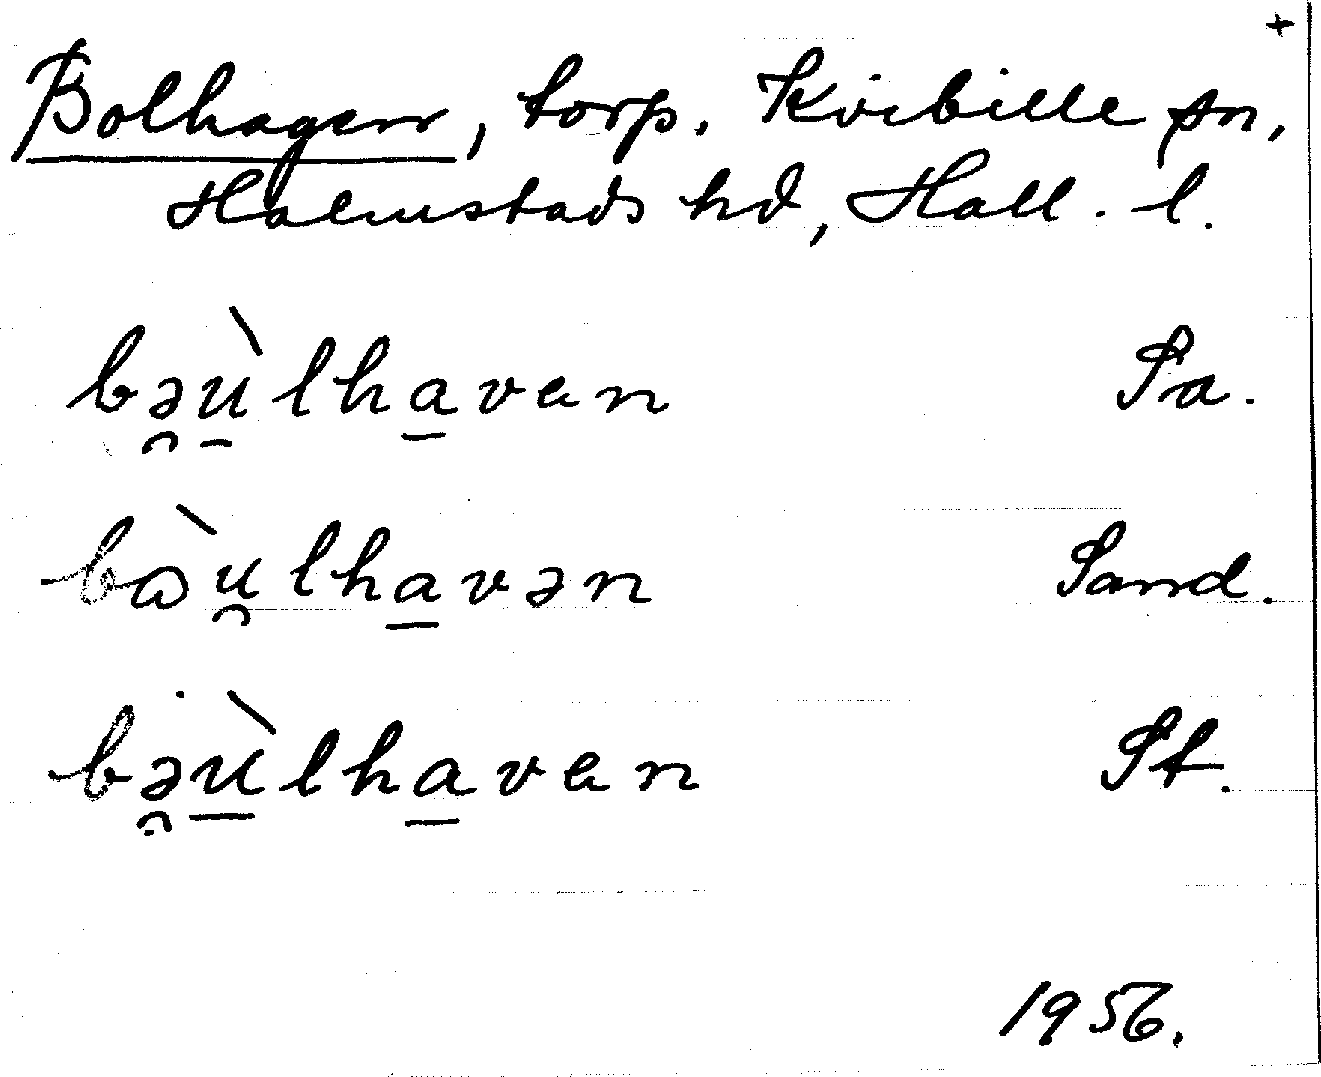 +
Bolhagen, torp. Kvibille sn,
Halmstads hd, Hall. l.
bə̯ù̱lha̱ven Sa.
bɷ̀u̯lha̱vən Sand.
bə̯ù̱lha̱ven St.
1956.